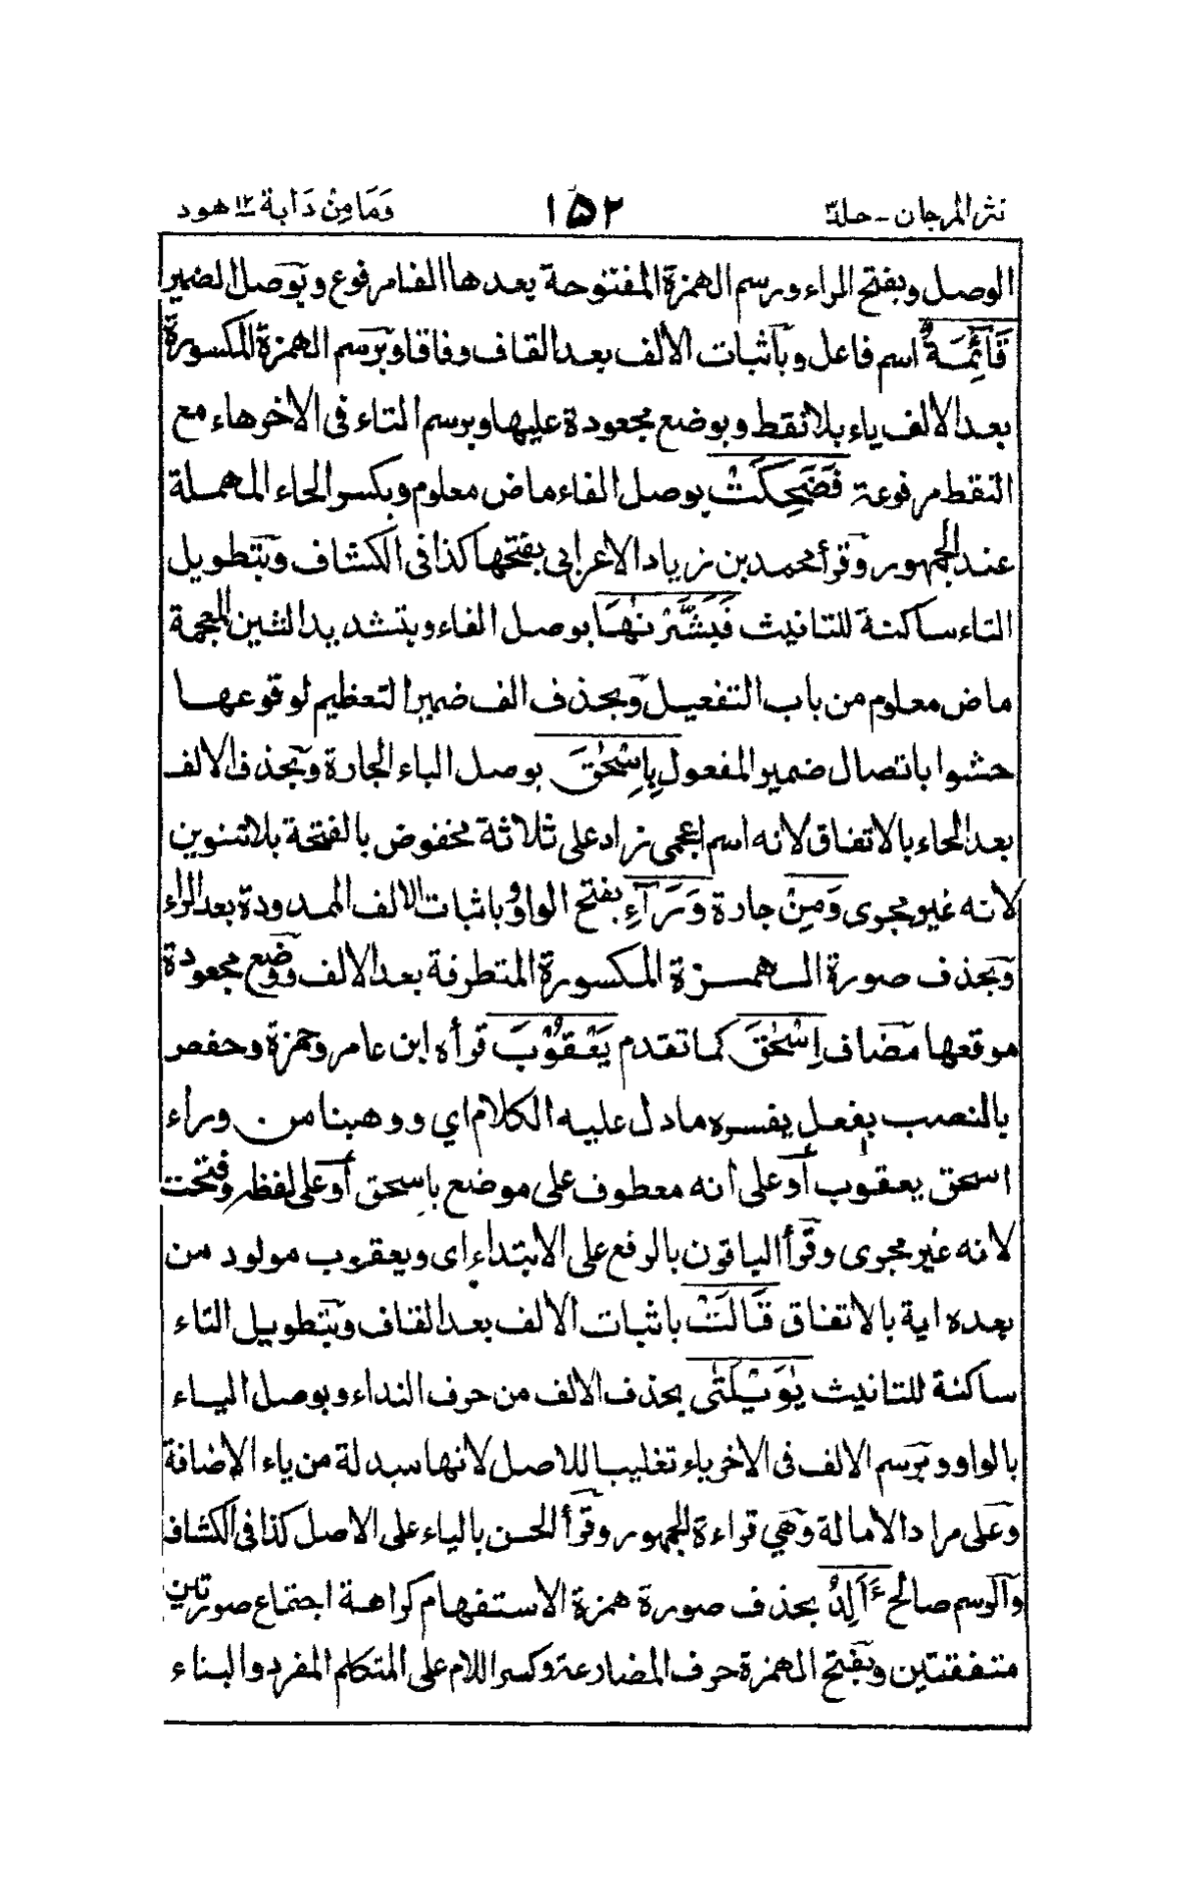 نثر المرجان - جلد٣ ١٥٢ وَمَا مِنْ دَآبة ١٢ هود
الوصل وبفتح الراء ورسم الهمزة المفتوحة بعدها الفا مرفوع وبوصل الضمير
قَآئِمَةٌ اسم فاعل وباثبات الألف بعد القاف وفاقا وبرسم الهمزة المكسورة
بعد الالف ياء بلا نقط وبوضع مجعودة عليها وبرسم التاء فى الاخر هاء مع
النقط مرفوعة فَضَحِكَتْ بوصل الفاء ماض معلوم وبكسر الحاء المهملة
عند الجمهور وقرأ محمد بن زياد الاعرابى بفتحها كذا فى الكشاف وبتطويل
التاء ساكنة للتانيث فَبَشَّرْنٰهَا بوصل الفاء وبتشديد الشين المعجمة
ماض معلوم من باب التفعيل وبحذف الف ضمير التعظيم لوقوعها
حشوا باتصال ضمير المفعول بِاِسْحٰقَ بوصل الباء الجارة وبحذف الالف
بعد الحاء بالاتفاق لانه اسم اعجمى زاد على ثلاثة مخفوض بالفتحة بلا تنوين
لانه غير مجرى وَمِنْ جارة وَرَآءِ بفتح الواو وباثبات الالف الممدودة بعد الراء
وبحذف صورة الهمزة المكسورة المتطرفة بعد الالف ووضع مجعودة
موقعها مضاف اِسْحٰقَ كما تقدم يَعْقُوْبَ قرأه ابن عامر وحمزة وحفص
بالنصب بفعل يفسره ما دل عليه الكلام اي ووهبنا من وراء
اسحق يعقوب أو على أنه معطوف على موضع باسحق أو على لفظه وفتحت
لانه غير مجرى وقرأ الباقون بالرفع على الابتداء اى ويعقوب مولود من
بعده اية بالاتفاق قَالَتْ باثبات الألف بعد القاف وبتطويل التاء
ساكنة للتانيث يٰوَيْلَتٰى بحذف الالف من حرف النداء وبوصل الياء
بالواو وبرسم الالف فى الاخر ياء تغليبا للاصل لانها مبدلة من ياء الإضافة
وعلى مراد الامالة وهي قراءة الجمهور وقرأ الحسن بالياء على الاصل كذا فى الكشاف
والرسم صالح ءَاَلِدُ بحذف صورة همزة الاستفهام كراهة اجتماع صورتين
متفقتين وبفتح الهمزة حرف المضارعة وكسر اللام على المتكلم المفرد والبناء